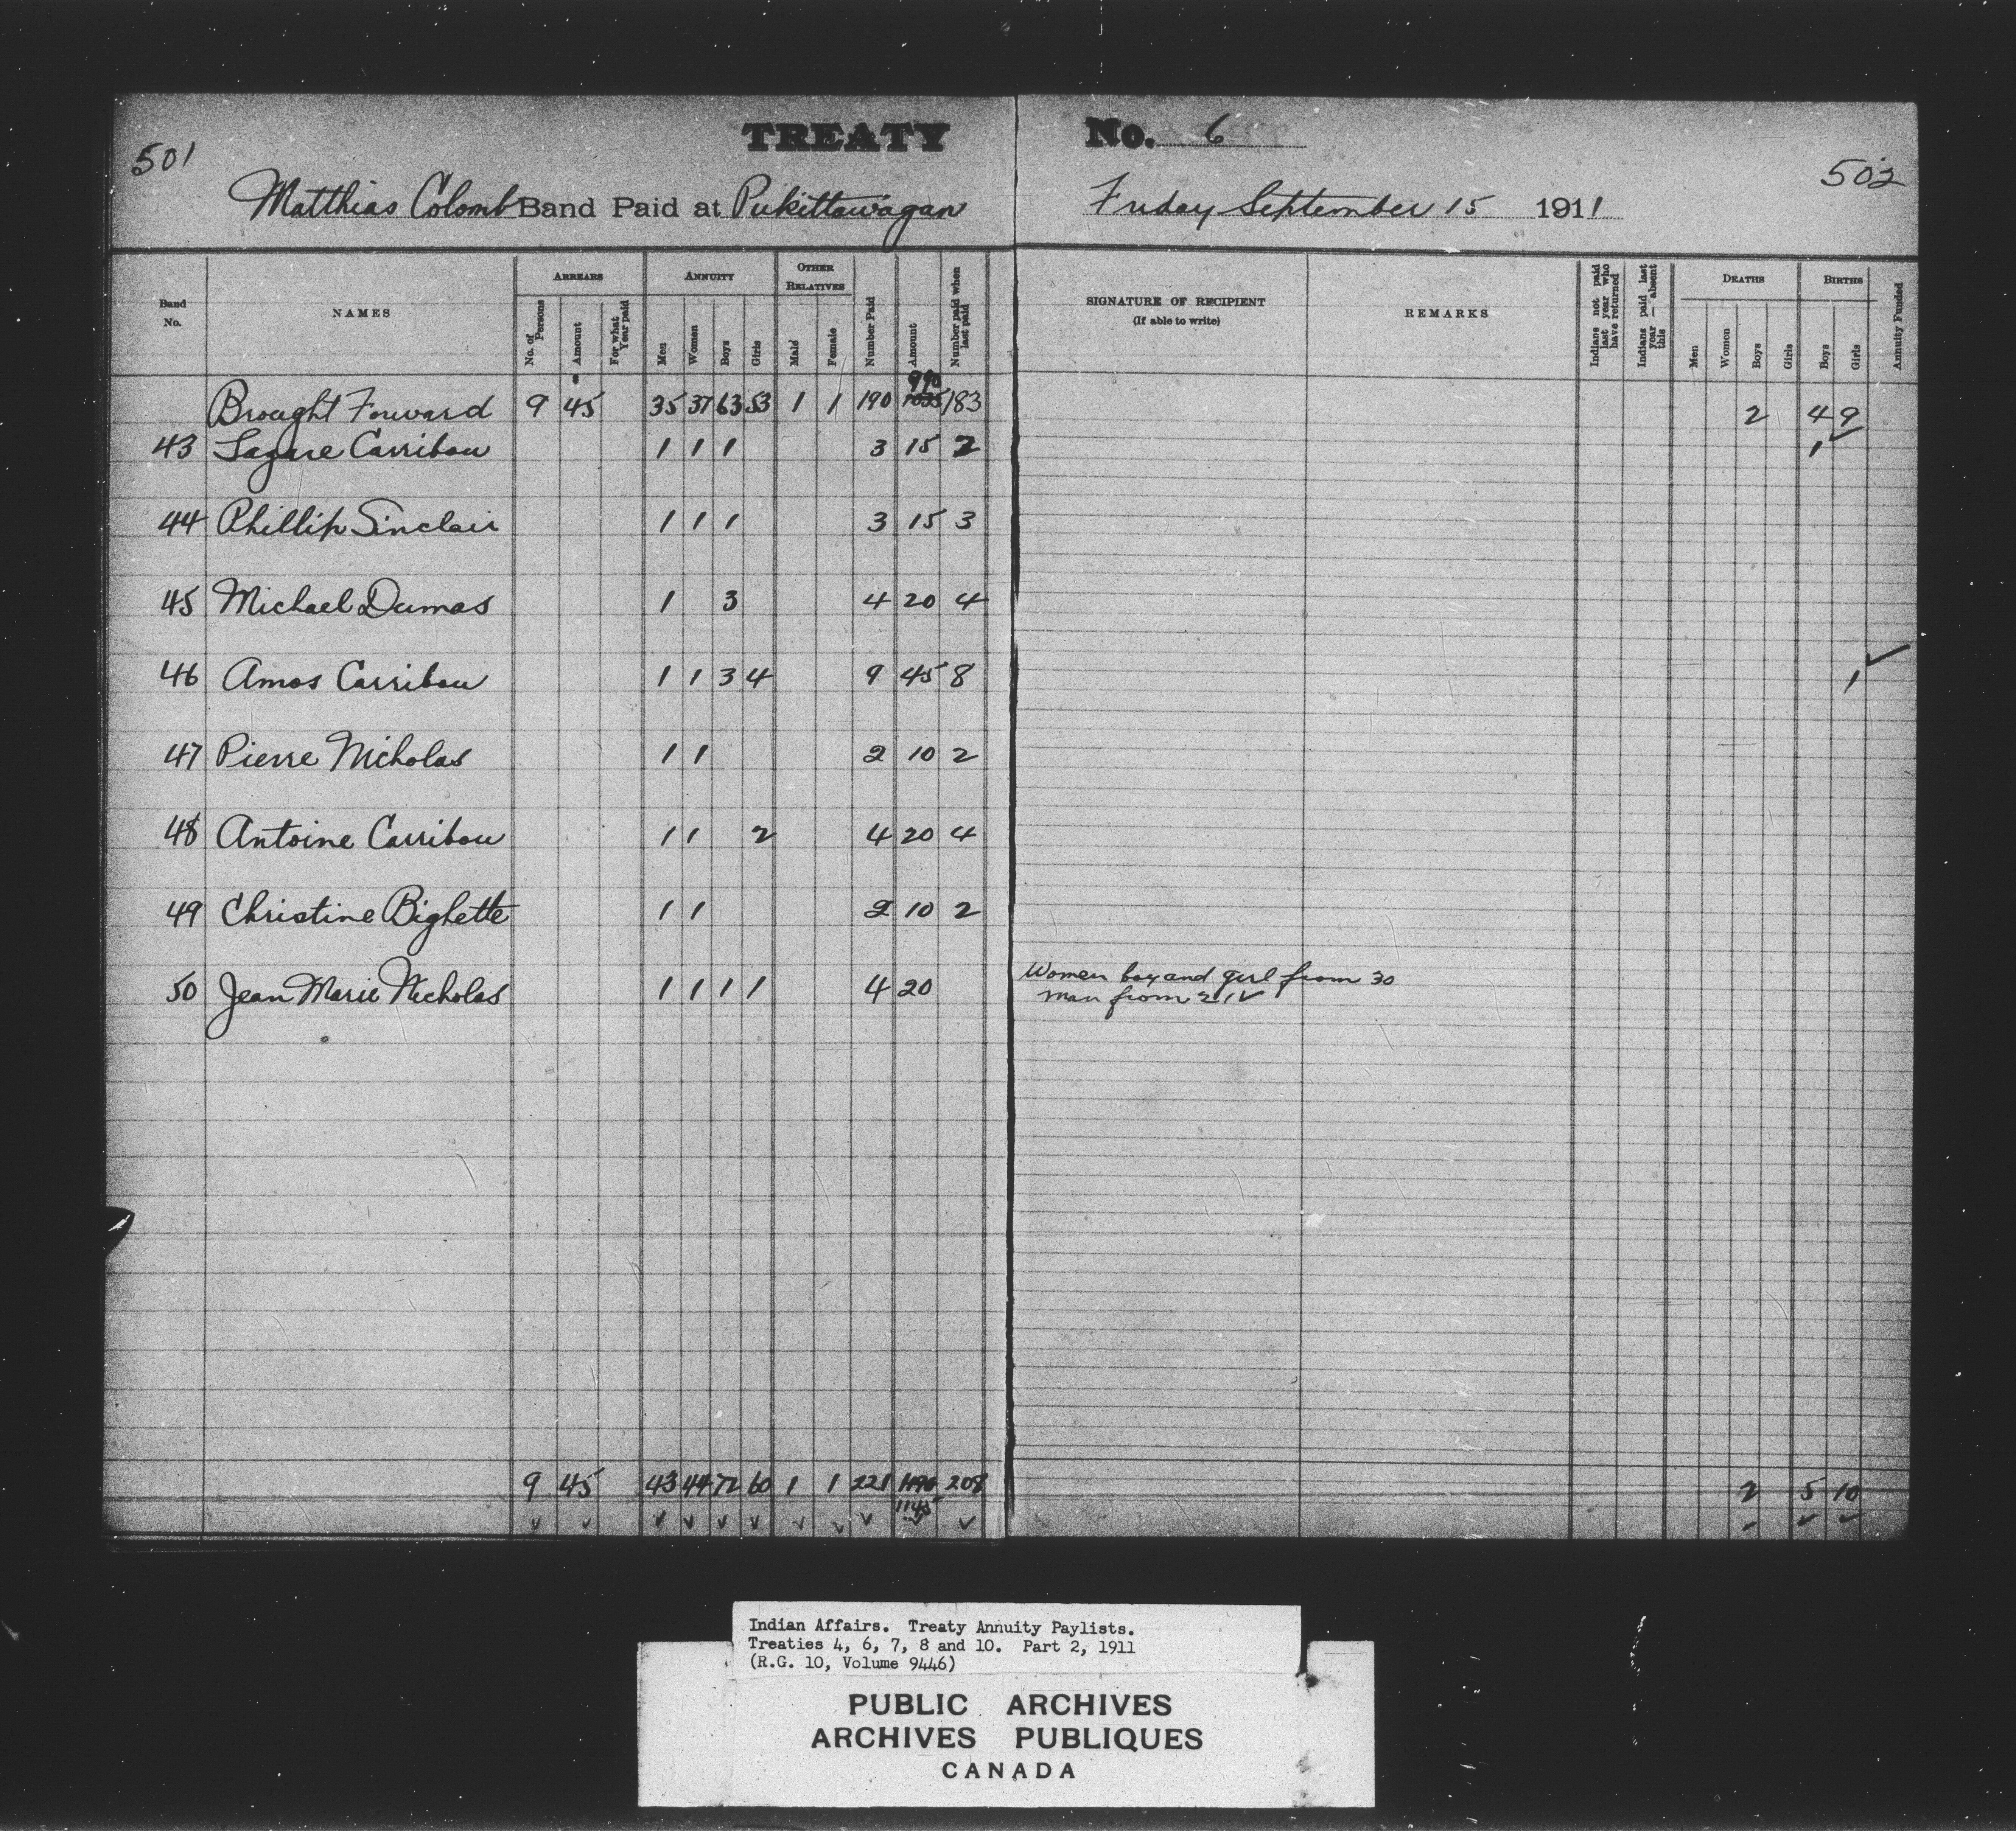 501
TREATY No. 6
502
Matthias Colomb Band Paid at Pukittawagan Friday September 15 1911
Band No.
NAMES
ARREARS
No. of Persons
Amount
For what Year paid
ANNUITY
Men
Women
Boys
Girls
OTHER RELATIVES
Male
Female
Number Paid
Amount
Number paid when last paid
SIGNATURE OF RECIPIENT
(If able to write)
REMARKS
Indians not paid last year who have returned
Indians paid last year — absent this
DEATHS
Men
Women
Boys
Girls
BIRTHS
Boys
Girls
Annuity Funded
990
Brought Forward 9 45 35 37 63 53 1 1 190 1035 183 2 4 9
43 Lazare Carribou 1 1 1 3 15 2 1
44 Phillip Sinclair 1 1 1 3 15 3
45 Michael Dumas 1 3 4 20 4
46 Amos Carribou 1 1 3 4 9 45 8 1
47 Pierre Nicholas 1 1 2 10 2
48 Antoine Carribou 1 1 2 4 20 4
49 Christine Bighette 1 1 2 10 2
50 Jean Marie Nicholas 1 1 1 1 4 20 Women boy and girl from 30
man from 21
9 45 43 44 72 60 1 1 221 1190 208 2 5 10
1145
Indian Affairs. Treaty Annuity Paylists.
Treaties 4, 6, 7, 8 and 10. Part 2, 1911
(R.G. 10, Volume 9446)
PUBLIC ARCHIVES
ARCHIVES PUBLIQUES
CANADA